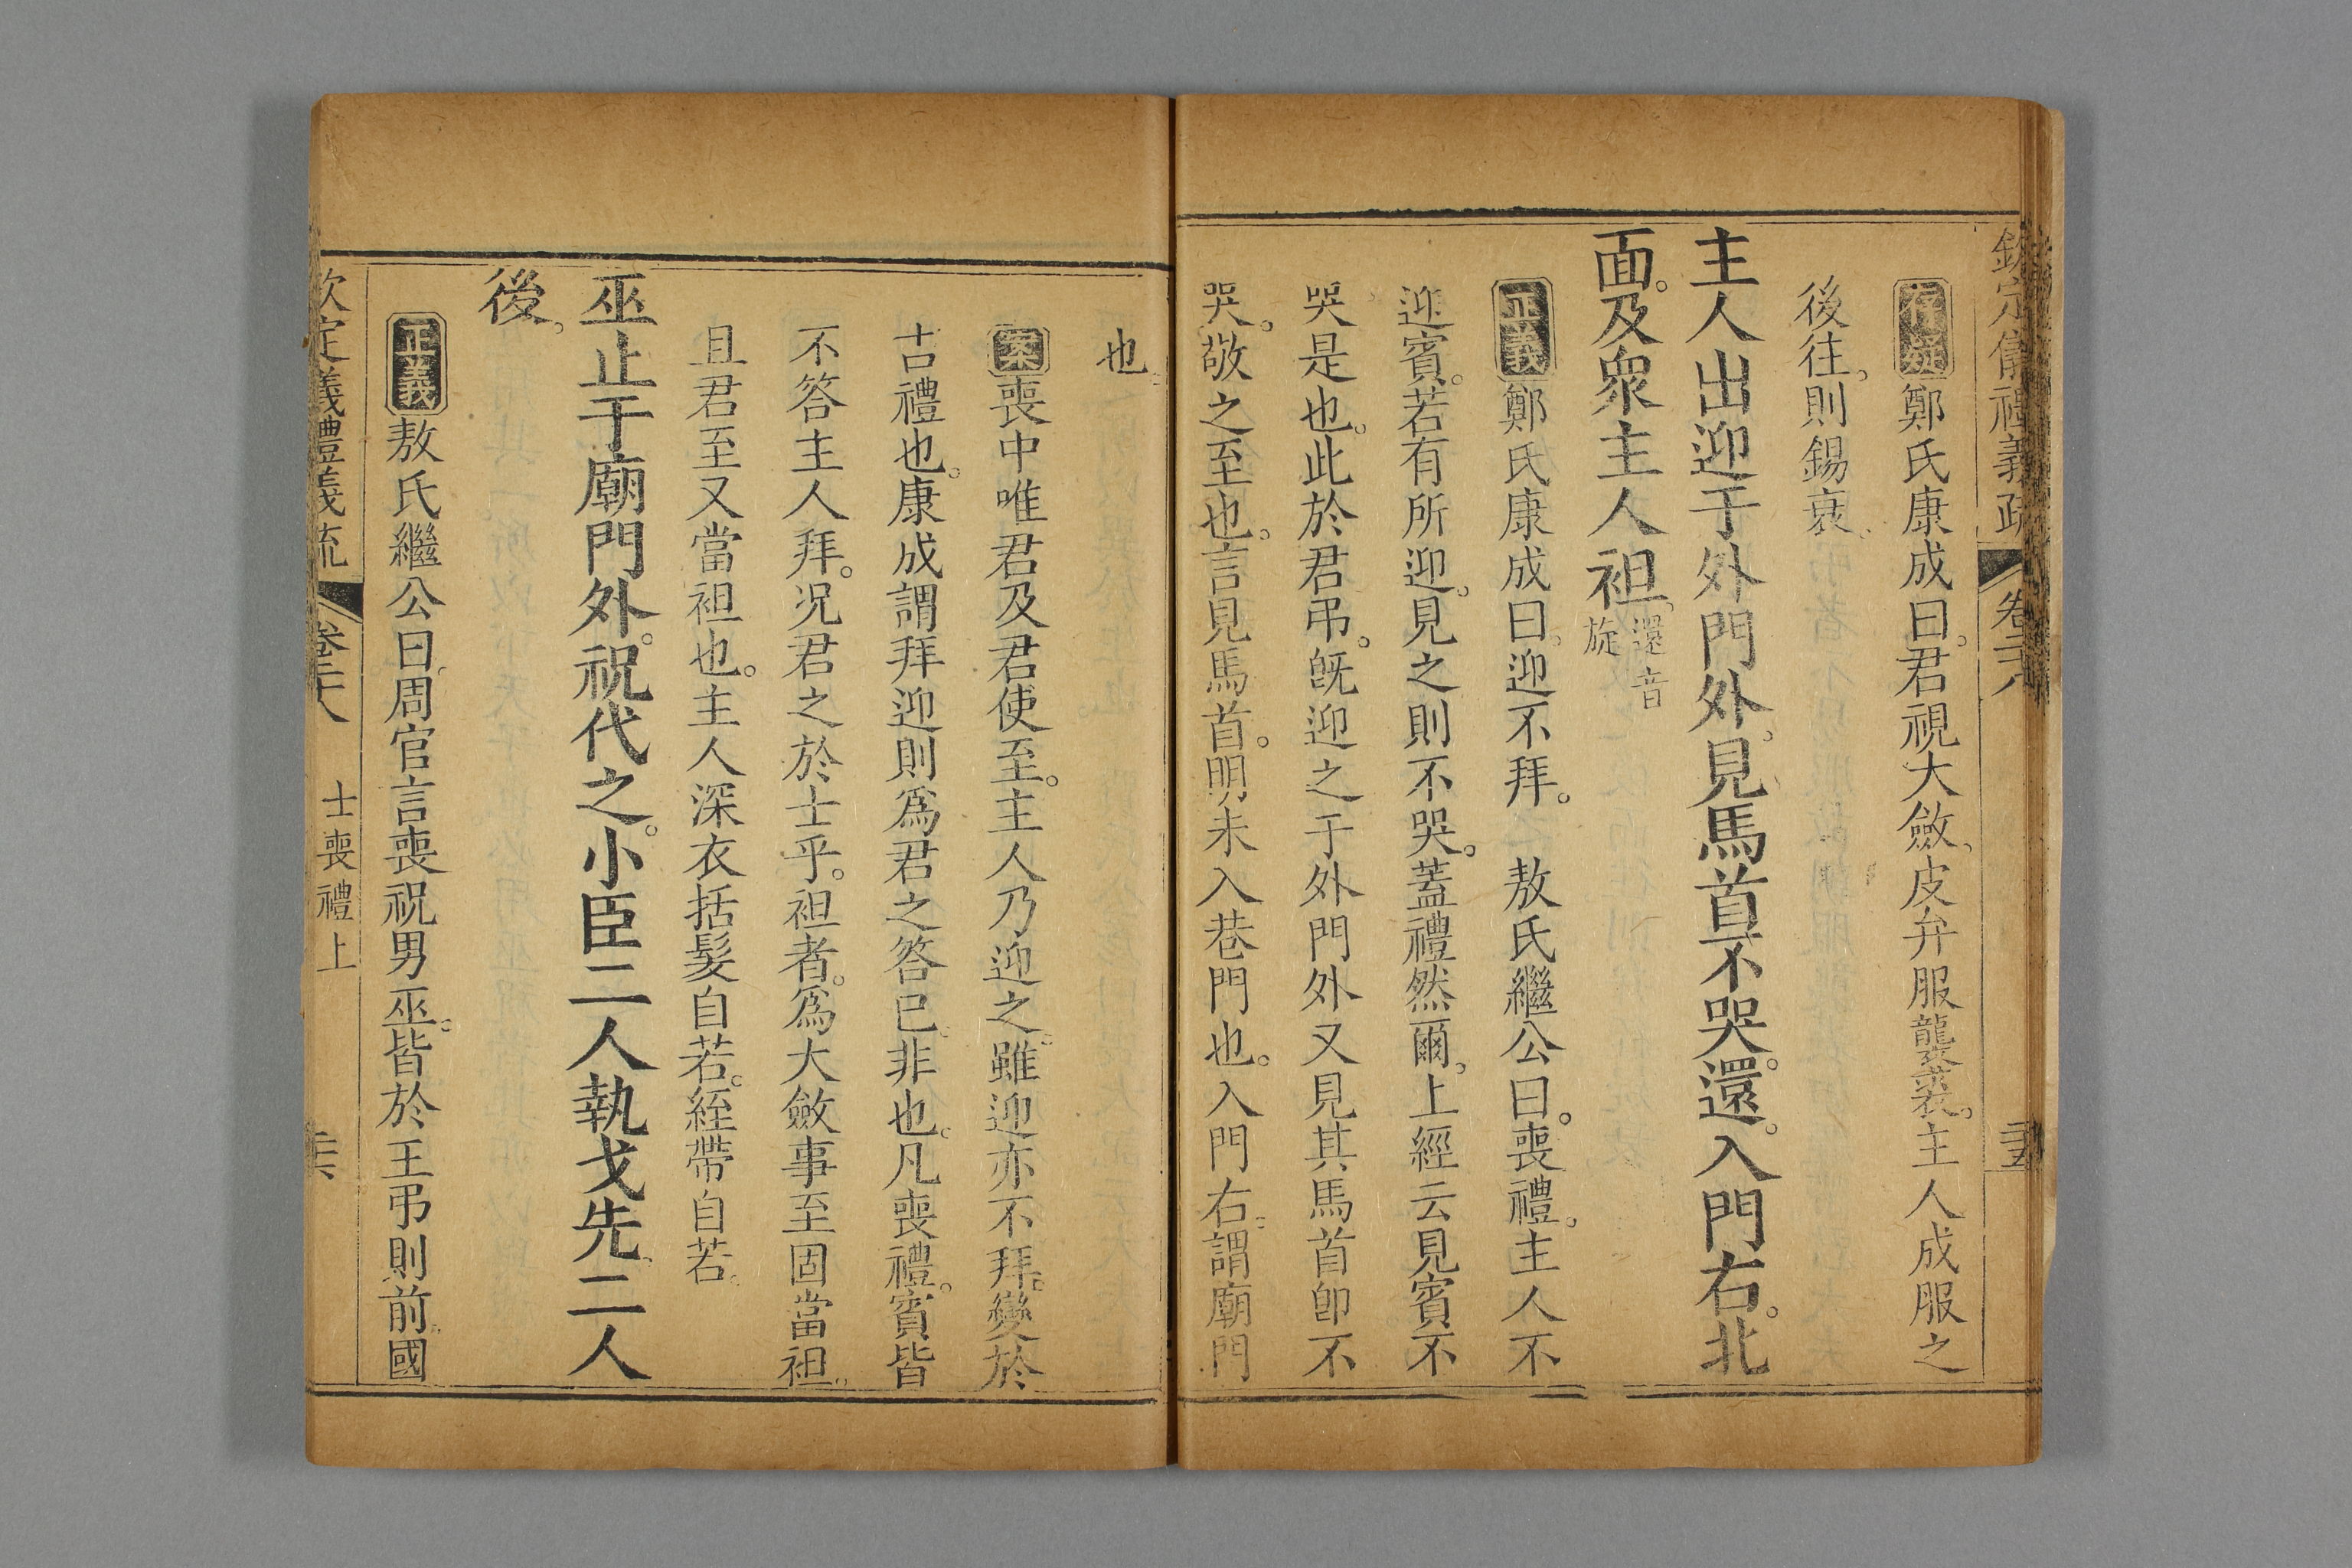 欽定儀禮義疏 卷二十八 三十五
存疑鄭氏康成曰。君視大斂、皮弁服襲裘。主人成服之
後往、則錫衰。
主人出迎于外門外。見馬首不哭。還。入門右。北
面。及衆主人袒。還音旋
正義鄭氏康成曰。迎不拜。 敖氏繼公曰。喪禮。主人不
迎賓。若有所迎。見之則不哭。蓋禮然爾。上經云見賓不
哭是也。此於君弔。旣迎之于外門外又見其馬首卽不
哭。敬之至也。言見馬首。明未入巷門也。入門右。謂廟門
也。
案喪中唯君及君使至。主人乃迎之。雖迎亦不拜。變於
吉禮也。康成謂拜迎則爲君之答已。非也。凡喪禮。賓皆
不答主人拜。况君之於士乎。袒者。爲大斂事至固當袒。
且君至又當袒也。主人深衣括髮自若。絰帶自若。
巫止于廟門外。祝代之。小臣二人執戈先、二人
後。
正義敖氏繼公曰。周官言喪祝男巫。皆於王弔則前。國
欽定儀禮義疏 卷二十八 士喪禮上